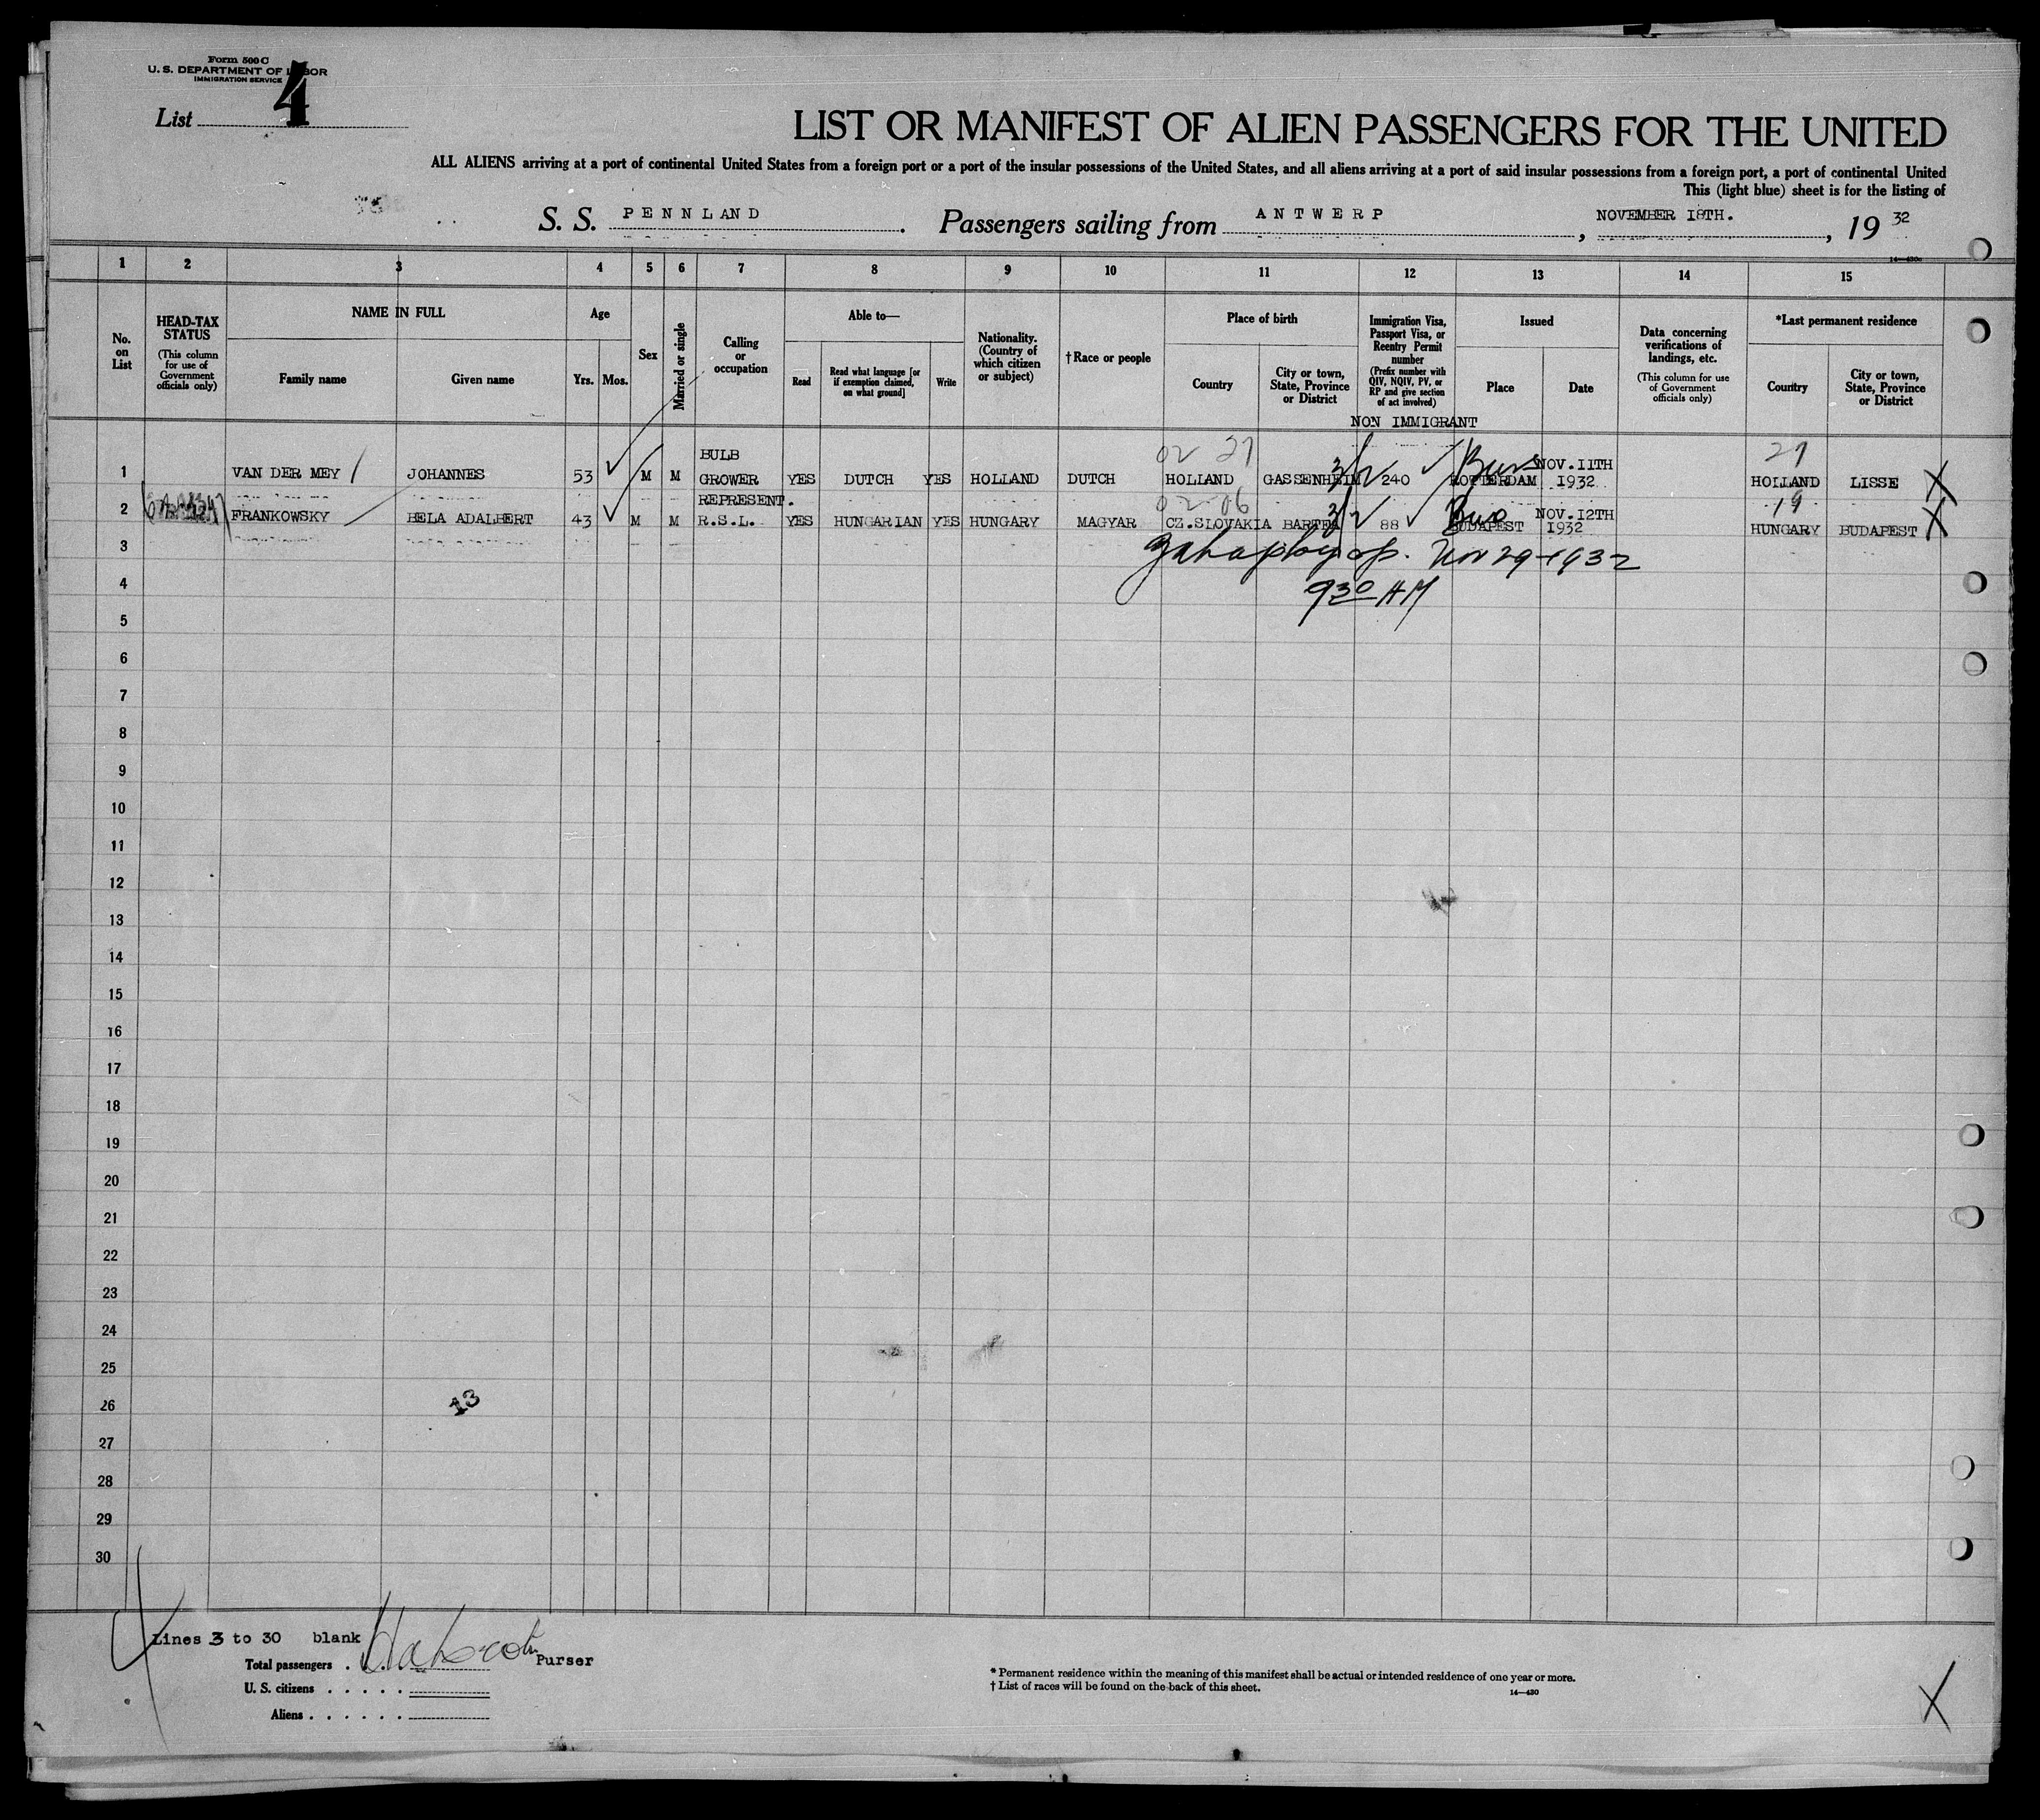 Form 500 C
U. S. DEPARTMENT OF LABOR
IMMIGRATION SERVICE
List 4
LIST OR MANIFEST OF ALIEN PASSENGERS FOR THE UNITED
ALL ALIENS arriving at a port of continental United States from a foreign port or a port of the insular possessions of the United States, and all aliens arriving at a port of said insular possessions from a foreign port, a port of continental United
This (light blue) sheet is for the listing of
S. S. PENNLAND. Passengers sailing from ANTWERP, NOVEMBER 18TH., 19 32
14—430c
1 2 3 4 5 6 7 8 9 10 11 12 13 14 15
No. on List
HEAD-TAX STATUS
(This column for use of Government officials only)
NAME IN FULL
Family name
Given name
Age
Yrs. Mos.
Sex
Married or single
Calling or occupation
Able to—
Read
Read what language [or if exemption claimed, on what ground]
Write
Nationality. (Country of which citizen or subject)
†Race or people
Place of birth
Country
City or town, State, Province or District
Immigration Visa, Passport Visa, or Reentry Permit number
(Prefix number with QIV, NQIV, PV, or RP and give section of act involved)
Issued
Place
Date
Data concerning verifications of landings, etc.
(This column for use of Government officials only)
*Last permanent residence
Country
City or town, State, Province or District
NON IMMIGRANT
02 27 27
1 VAN DER MEY JOHANNES 53 M M BULB GROWER YES DUTCH YES HOLLAND DUTCH HOLLAND GASSENHEIM 3/2 240 ROTTERDAM NOV.11TH 1932 HOLLAND LISSE X
02-06 19
2 FRANKOWSKY BELA ADALBERT 43 M M REPRESENT. R.S.L. YES HUNGARIAN YES HUNGARY MAGYAR CZ.SLOVAKIA BARTFA 3/2 88 BUDAPEST NOV.12TH 1932 HUNGARY BUDAPEST X
3 Nov 29-1932
4 9 30 AM
5
6
7
8
9
10
11
12
13
14
15
16
17
18
19
20
21
22
23
24
25
26 13
27
28
29
30
Lines 3 to 30 blank
Purser
Total passengers
U. S. citizens
Aliens
* Permanent residence within the meaning of this manifest shall be actual or intended residence of one year or more.
† List of races will be found on the back of this sheet.
14—430
X